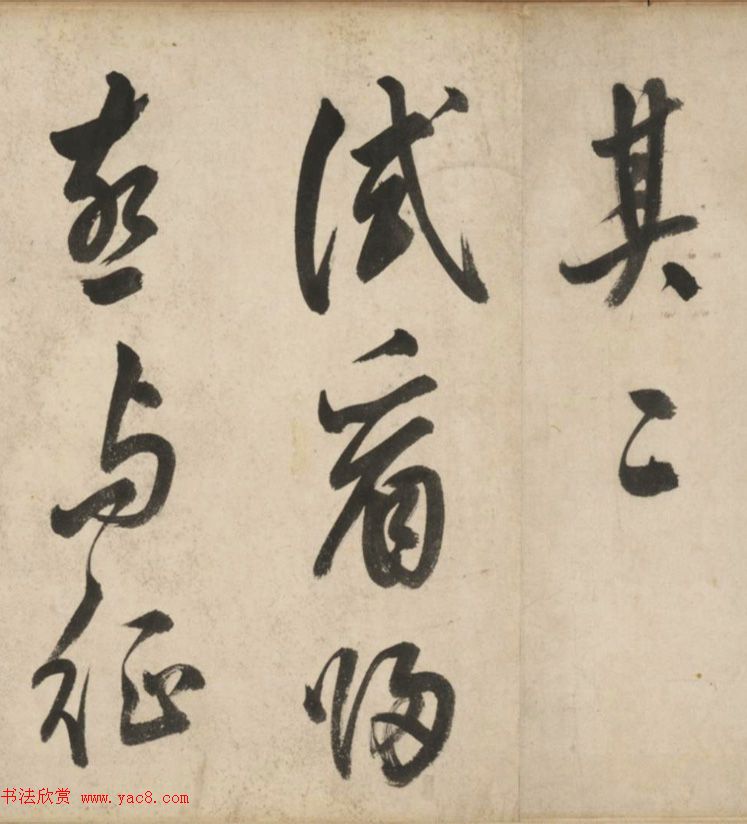 其二
試看歸
燕与征
书法欣赏 www.yac8.com